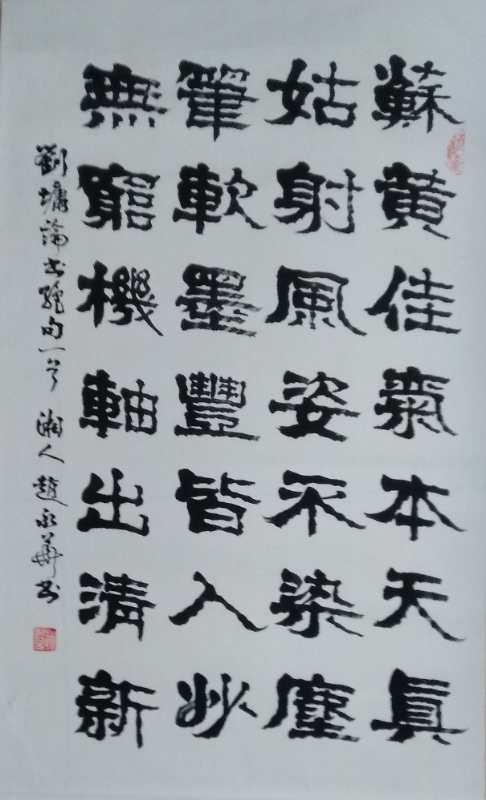 蘇黄佳氣本天真
姑射風姿不染塵
筆軟墨豐皆入妙
無窮機軸出清新
劉墉論書絶句一首 湘人趙永華書